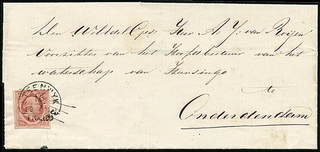 Den Wel Edel Gestr. Heer A. J. van Roijen
Voorzitter van het Hoofdbestuur van het
waterschap van Hunsingo
te
Onderdendam